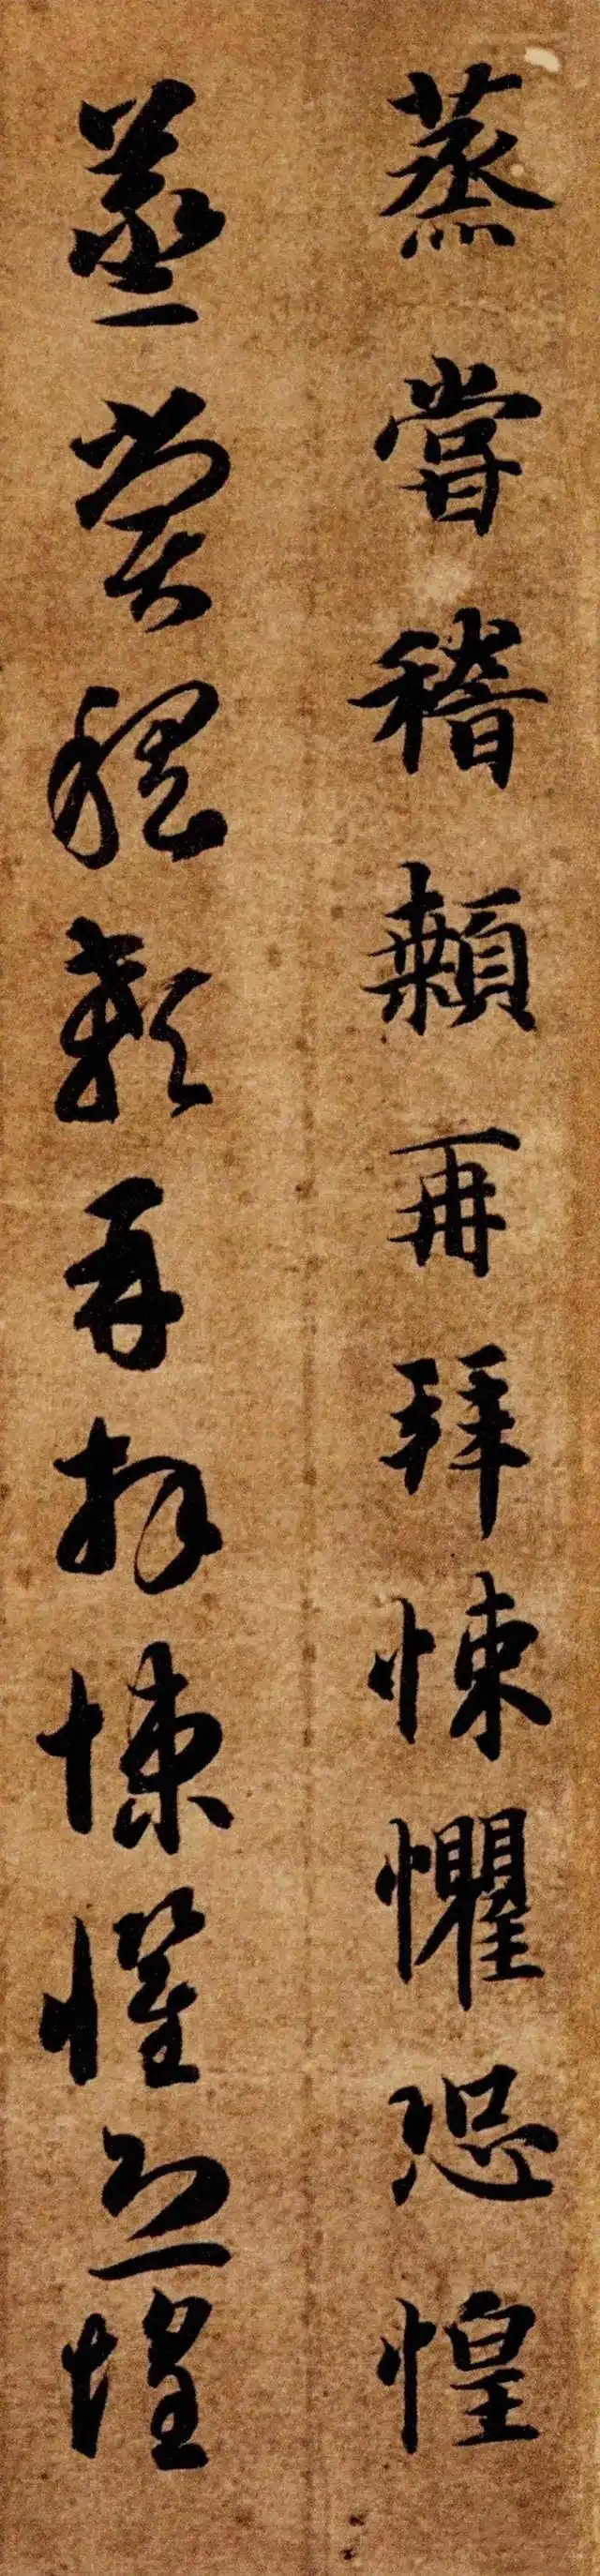 蒸甞稽顙再拜悚懼恐惶
蒸甞稽顙再拜悚懼恐惶